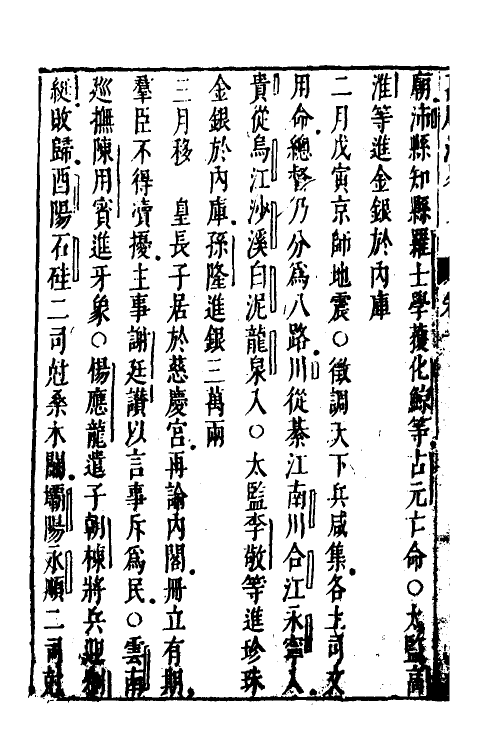 廟沛縣知縣羅士學獲化鯨等占元亡命○太監高
淮等進金銀於內庫
二月戊寅京師地震○徵調天下兵咸集各土司文
用命總督乃分爲八路川從綦江南川合江永寧入
貴從烏江沙溪白泥龍泉入○太監李敬等進珍珠
金銀於內庫孫隆進銀三萬兩
三月移 皇長子居於慈慶宮再諭內閣冊立有期
羣臣不得瀆擾主事謝廷讚以言事斥爲民○雲南
巡撫陳用賓進牙象○楊應龍遣子朝棟將兵迎
綎敗歸酉陽石砫二司尅桑木關壩陽永順二司尅